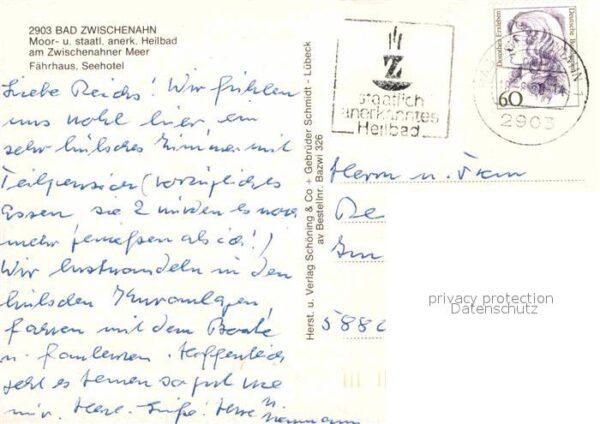 2903 BAD ZWISCHENAHN
Moor- u. staatl. anerk. Heilbad
am Zwischenahner Meer
Fährhaus, Seehotel
Liebe Reichs! Wir fühlen
uns wohl hier, ein
sehr hübsches Zimmer mit
Teilpension (vorzügliches
Essen, sie 2 würden es noch
mehr genießen als ich!)
Wir lustwandeln in den
hübschen Kuranlagen,
fahren mit dem Boote
u. faulenzen. Hoffentlich
geht es Ihnen so gut wie
mir. Herzl. Grüße! Ihre
Herst. u. Verlag Schöning & Co + Gebrüder Schmidt - Lübeck
av Bestellnr. Bazwi 326
Z
staatlich
anerkanntes
Heilbad
Dorothea Erxleben
Deutsche Bundespost
60
2903
Herrn u. Frau
privacy protection
Datenschutz